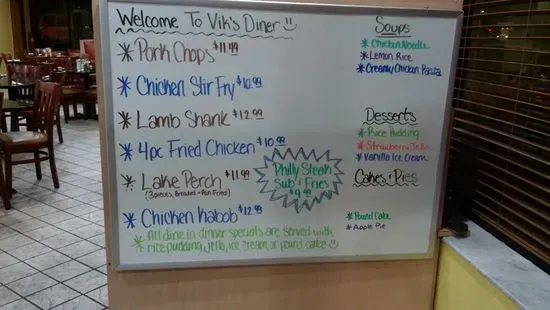 Welcome To Vik's Diner
* Pork Chops $11.49
* Chicken Stir Fry $10.99
* Lamb Shank $12.99
* 4pc Fried Chicken $10.99
* Lake Perch $11.99
(3 pieces, Breaded + Pan Fried)
* Chicken Kabob $12.99
* All dine in dinner specials are served with
rice pudding, jello, ice cream, or pound cake
Philly Steak
Sub + Fries
$9.99
Soups
* Chicken Noodle
* Lemon Rice
* Creamy Chicken Pasta
Desserts
* Rice Pudding
* Strawberry Jello
* Vanilla Ice Cream
Cakes + Pies
* Pound Cake
* Apple Pie